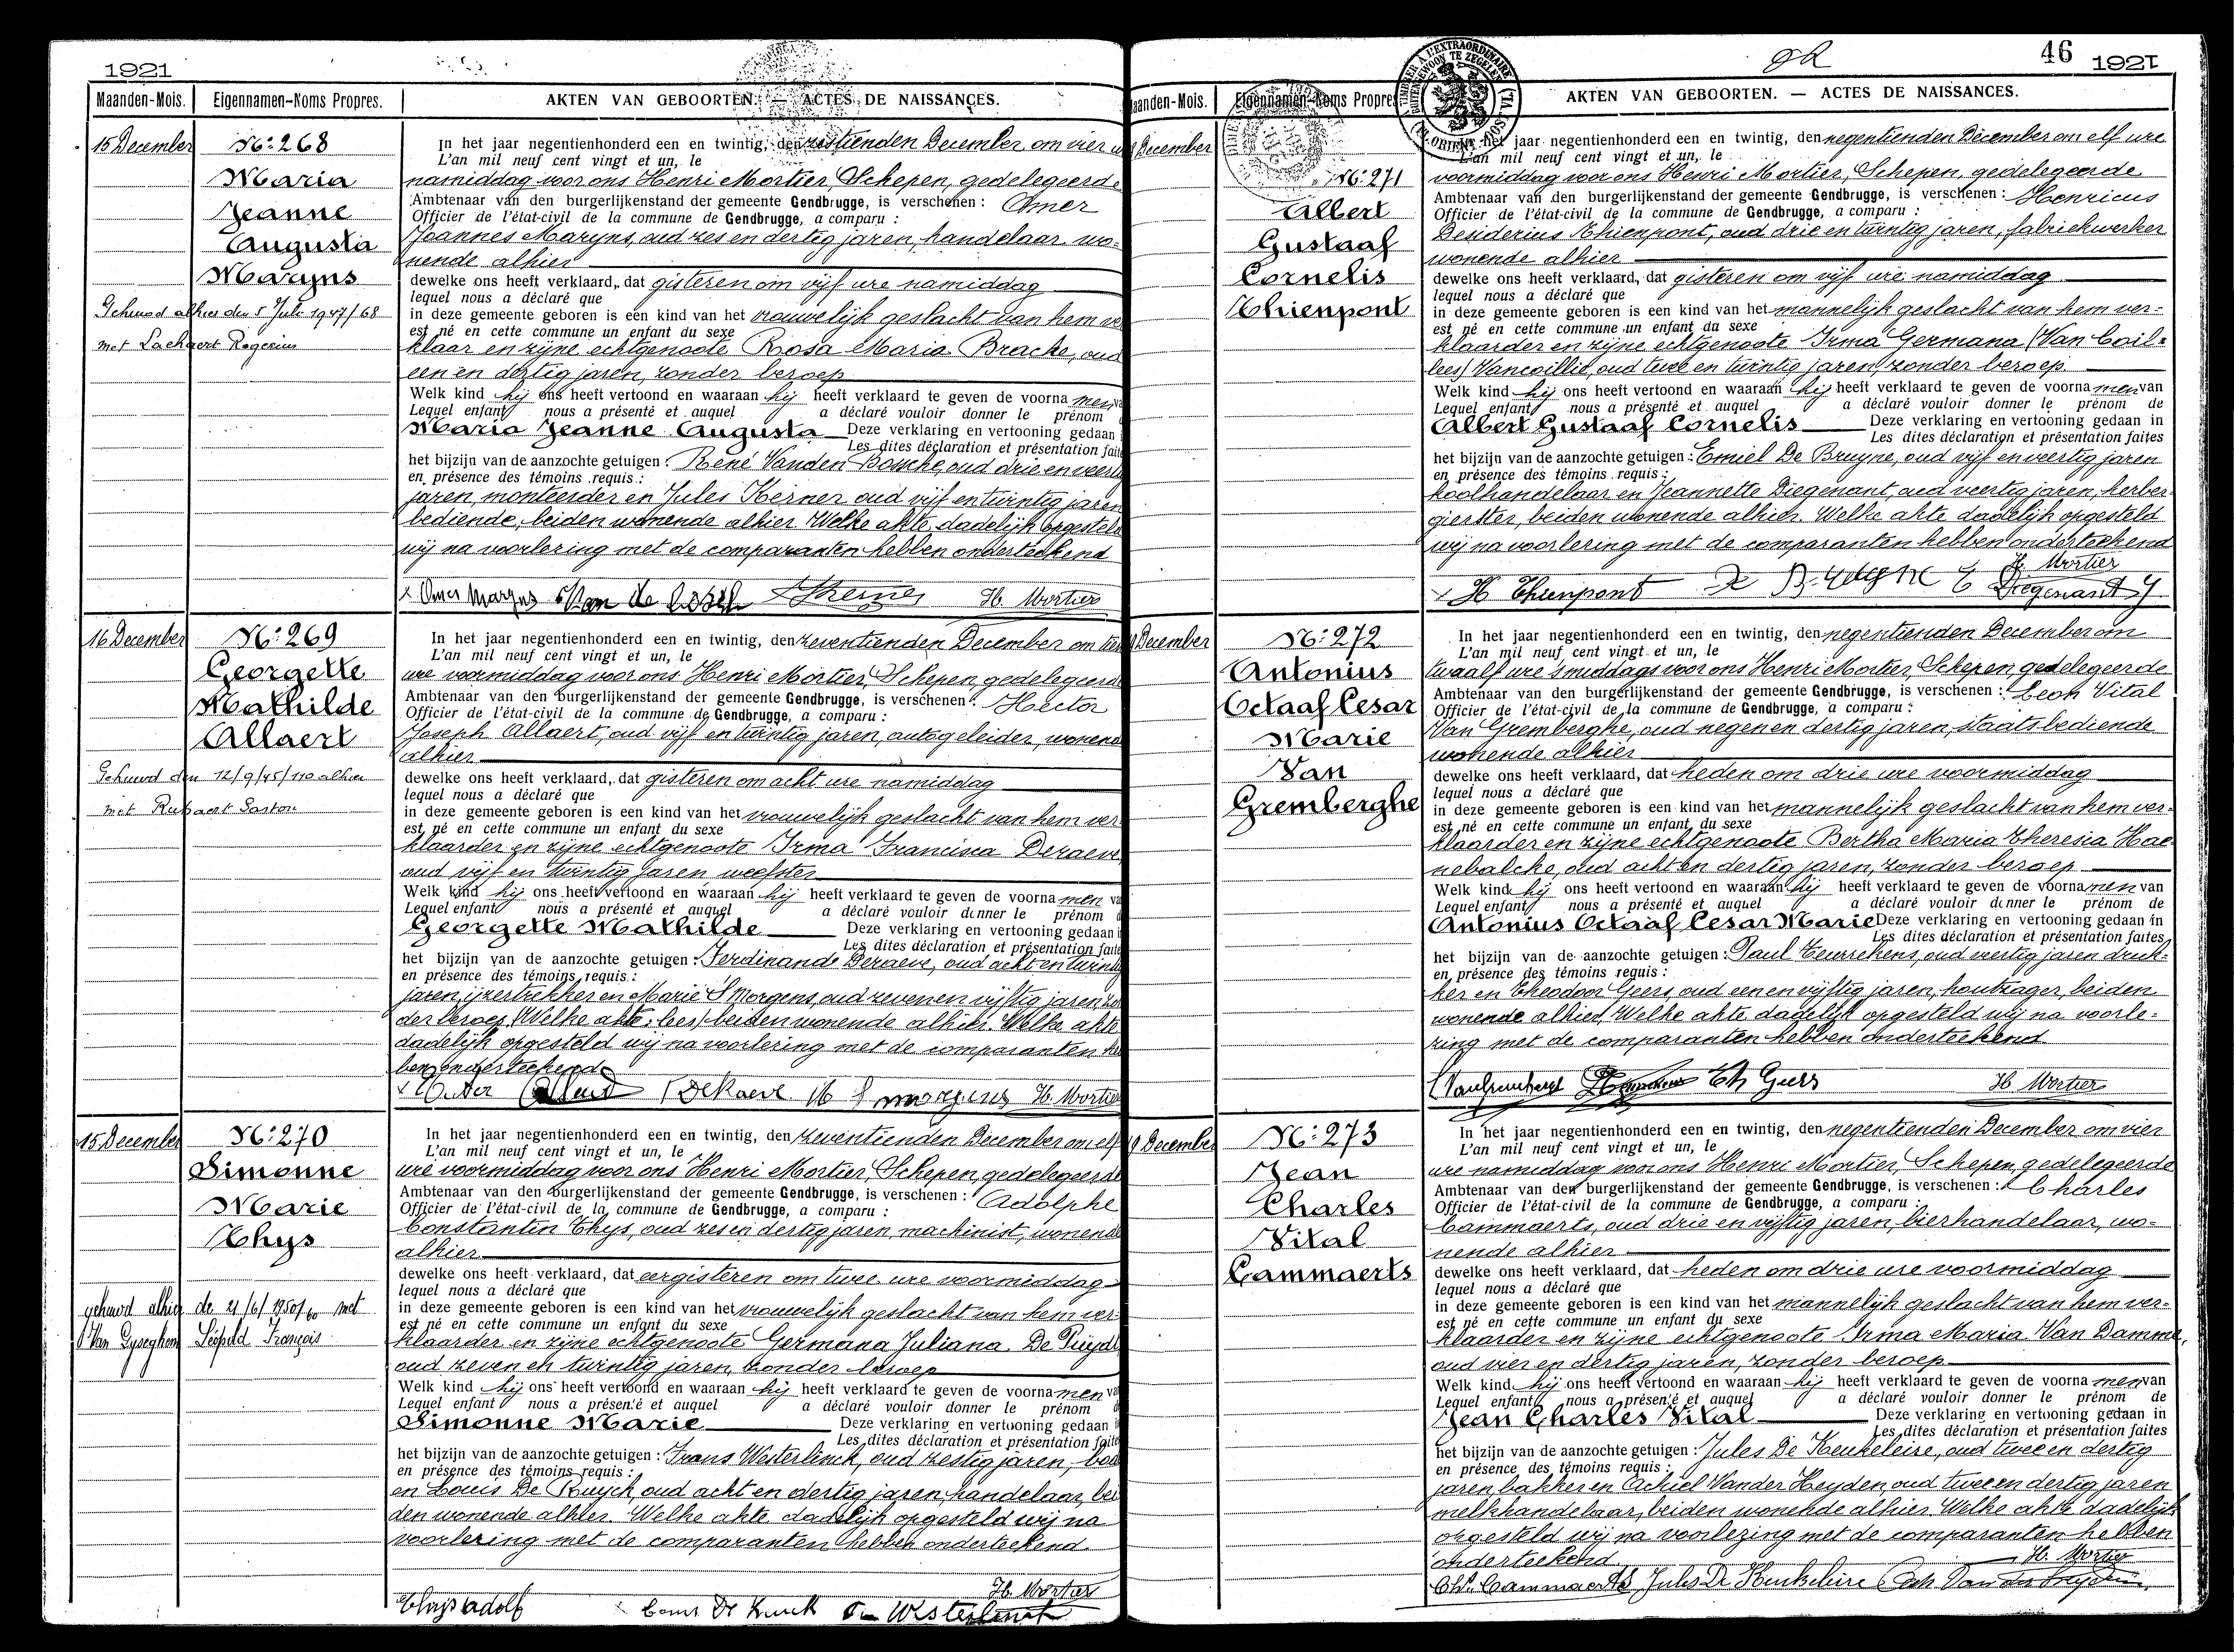 1921
Maanden-Mois. Eigennamen-Noms Propres. AKTEN VAN GEBOORTEN. — ACTES DE NAISSANCES.
15 December
No: 268
Maria
Jeanne
Augusta
Maryns
Gehuwd alhier den 5 Juli 1947/68
met Rogerius
In het jaar negentienhonderd een en twintig, den zestienden December, om vier
L'an mil neuf cent vingt et un, le
namiddag voor ons Henri Mortier, Schepen, gedelegeerde
Ambtenaar van den burgerlijkenstand der gemeente Gendbrugge, is verschenen : Omer
Officier de l'état-civil de la commune de Gendbrugge, a comparu :
Joannes Maryns, oud zes en dertig jaren, handelaar wo=
nende alhier
dewelke ons heeft verklaard, dat gisteren om vijf ure namiddag
lequel nous a déclaré que
in deze gemeente geboren is een kind van het vrouwelijk geslacht van hem ver
est né en cette commune un enfant du sexe
klaar en zijne echtgenoote Rosa Maria Bracke, oud
een en dertig jaren, zonder beroep
Welk kind hij ons heeft vertoond en waaraan hij heeft verklaard te geven de voornamen
Lequel enfant nous a présenté et auquel a déclaré vouloir donner le prénom
Maria Jeanne Augusta Deze verklaring en vertooning gedaan
Les dites déclaration et présentation fait
het bijzijn van de aanzochte getuigen : René Vanden Bossche, oud drie en veertig
en présence des témoins requis :
jaren, monteerder en Jules Kerner oud vijf en twintig jaren
bediende, beiden wonende alhier Welke akte dadelijk opgesteld
wij na voorlezing met de comparanten hebben onderteekend
Omer Maryns H. Mortier
16 December
No: 269
Georgette
Mathilde
Allaert
Gehuwd den 12/9/45/110 alhier
met
In het jaar negentienhonderd een en twintig, den zeventienden December om tien
L'an mil neuf cent vingt et un, le
ure voormiddag voor ons Henri Mortier, Schepen, gedelegeerde
Ambtenaar van den burgerlijkenstand der gemeente Gendbrugge, is verschenen : Hector
Officier de l'état-civil de la commune de Gendbrugge, a comparu :
Joseph Allaert, oud vijf en twintig jaren, autogeleider, wonende
alhier
dewelke ons heeft verklaard, dat gisteren om acht ure namiddag
lequel nous a déclaré que
in deze gemeente geboren is een kind van het vrouwelijk geslacht van hem ver
est né en cette commune un enfant du sexe
klaarder en zijne echtgenoote Irma Francisca Deraeve,
oud vijf en twintig jaren weefster
Welk kind hij ons heeft vertoond en waaraan hij heeft verklaard te geven de voornamen
Lequel enfant nous a présenté et auquel a déclaré vouloir donner le prénom
Georgette Mathilde Deze verklaring en vertooning gedaan
Les dites déclaration et présentation faite
het bijzijn van de aanzochte getuigen : Ferdinand Deraeve, oud acht en twintig
en présence des témoins requis :
jaren, ijzertrekker en Marie S'Morgens, oud zeven en vijftig jaren, zon
der beroep (Welke akte: lees) beiden wonende alhier. Welke akte
dadelijk opgesteld wij na voorlezing met de comparanten heb
ben onderteekend
Deraeve M Smorgens H. Mortier
15 December
No: 270
Simonne
Marie
Thys
gehuwd alhier de 21/6/1950/60 met
Van Gyseghem Leopold François
In het jaar negentienhonderd een en twintig, den zeventienden December om elf
L'an mil neuf cent vingt et un, le
ure voormiddag voor ons Henri Mortier, Schepen, gedelegeerde
Ambtenaar van den burgerlijkenstand der gemeente Gendbrugge, is verschenen : Adolphe
Officier de l'état-civil de la commune de Gendbrugge, a comparu :
Constantin Thys, oud zes en dertig jaren, machinist, wonende
alhier
dewelke ons heeft verklaard, dat eergisteren om twee ure voormiddag
lequel nous a déclaré que
in deze gemeente geboren is een kind van het vrouwelijk geslacht van hem ver
est né en cette commune un enfant du sexe
klaarder en zijne echtgenoote Germana Juliana De Puydt
oud zeven en twintig jaren, zonder beroep
Welk kind hij ons heeft vertoond en waaraan hij heeft verklaard te geven de voornamen
Lequel enfant nous a présenté et auquel a déclaré vouloir donner le prénom
Simonne Marie Deze verklaring en vertooning gedaan
Les dites déclaration et présentation faite
het bijzijn van de aanzochte getuigen : Frans Westerlinck, oud zestig jaren,
en présence des témoins requis :
en Louis De Kuyck, oud acht en dertig jaren, handelaar, bei
den wonende alhier. Welke akte dadelijk opgesteld wij na
voorlezing met de comparanten hebben onderteekend
H. Mortier
Thys Adolf Westerlinck
46 1921
Maanden-Mois. Eigennamen-Noms Propres AKTEN VAN GEBOORTEN. — ACTES DE NAISSANCES.
December
No: 271
Albert
Gustaaf
Cornelis
Thienpont
het jaar negentienhonderd een en twintig, den negentienden December om elf ure
L'an mil neuf cent vingt et un, le
voormiddag voor ons Henri Mortier, Schepen, gedelegeerde
Ambtenaar van den burgerlijkenstand der gemeente Gendbrugge, is verschenen : Henricus
Officier de l'état-civil de la commune de Gendbrugge, a comparu :
Desiderius Thienpont, oud drie en twintig jaren, fabriekwerker
wonende alhier
dewelke ons heeft verklaard, dat gisteren om vijf ure namiddag
lequel nous a déclaré que
in deze gemeente geboren is een kind van het mannelijk geslacht van hem ver=
est né en cette commune un enfant du sexe
klaarder en zijne echtgenoote Irma Germana (Van Coil=
lees) Vancoillie, oud twee en twintig jaren, zonder beroep
Welk kind hij ons heeft vertoond en waaraan hij heeft verklaard te geven de voornamen van
Lequel enfant nous a présenté et auquel a déclaré vouloir donner le prénom de
Albert Gustaaf Cornelis Deze verklaring en vertooning gedaan in
Les dites déclaration et présentation faites
het bijzijn van de aanzochte getuigen : Emiel De Bruyne, oud vijf en veertig jaren
en présence des témoins requis :
koolhandelaar en Jeannette Diegenant, oud veertig jaren, herber
gierster, beiden wonende alhier. Welke akte dadelijk opgesteld
wij na voorlezing met de comparanten hebben onderteekend
H. Mortier
H Thienpont De Bruyne E Diegenant J
December
No: 272
Antonius
Octaaf Cesar
Marie
Van
Gremberghe
In het jaar negentienhonderd een en twintig, den negentienden December om
L'an mil neuf cent vingt et un, le
twaalf ure 's middags voor ons Henri Mortier, Schepen, gedelegeerde
Ambtenaar van den burgerlijkenstand der gemeente Gendbrugge, is verschenen : Leon Vital
Officier de l'état-civil de la commune de Gendbrugge, a comparu :
Van Gremberghe, oud negen en dertig jaren, staatsbediende
wonende alhier
dewelke ons heeft verklaard, dat heden om drie ure voormiddag
lequel nous a déclaré que
in deze gemeente geboren is een kind van het mannelijk geslacht van hem ver=
est né en cette commune un enfant du sexe
klaarder en zijne echtgenoote Bertha Maria Theresia Hae
nebalcke, oud acht en dertig jaren, zonder beroep
Welk kind hij ons heeft vertoond en waaraan hij heeft verklaard te geven de voornamen van
Lequel enfant nous a présenté et auquel a déclaré vouloir donner le prénom de
Antonius Octaaf Cesar Marie Deze verklaring en vertooning gedaan in
Les dites déclaration et présentation faites
het bijzijn van de aanzochte getuigen : Paul Teurrekens, oud veertig jaren druk=
en présence des témoins requis :
ker en Theodoor Geers, oud een en vijftig jaren, houtzager, beiden
wonende alhier, Welke akte dadelijk opgesteld wij na voorle=
zing met de comparanten hebben onderteekend
Th Geers H. Mortier
19 December
No: 273
Jean
Charles
Vital
Cammaerts
In het jaar negentienhonderd een en twintig, den negentienden December om vier
L'an mil neuf cent vingt et un, le
ure namiddag voor ons Henri Mortier, Schepen, gedelegeerde
Ambtenaar van den burgerlijkenstand der gemeente Gendbrugge, is verschenen : Charles
Officier de l'état-civil de la commune de Gendbrugge, a comparu :
Cammaerts, oud drie en vijftig jaren, bierhandelaar, wo=
nende alhier
dewelke ons heeft verklaard, dat heden om drie ure voormiddag
lequel nous a déclaré que
in deze gemeente geboren is een kind van het mannelijk geslacht van hem ver=
est né en cette commune un enfant du sexe
klaarder en zijne echtgenoote Irma Maria Van Damme,
oud vier en dertig jaren, zonder beroep
Welk kind hij ons heeft vertoond en waaraan hij heeft verklaard te geven de voornamen van
Lequel enfant nous a présenté et auquel a déclaré vouloir donner le prénom de
Jean Charles Vital Deze verklaring en vertooning gedaan in
Les dites déclaration et présentation faites
het bijzijn van de aanzochte getuigen : Jules De Keukeleire, oud twee en dertig
en présence des témoins requis :
jaren, bakker en Achiel Vander Heyden, oud twee en dertig jaren
melkhandelaar, beiden wonende alhier. Welke akte dadelijk
opgesteld wij na voorlezing met de comparanten hebben
onderteekend
H. Mortier
Ch. Cammaerts Jules De Keukeleire Ach Van der Heyden